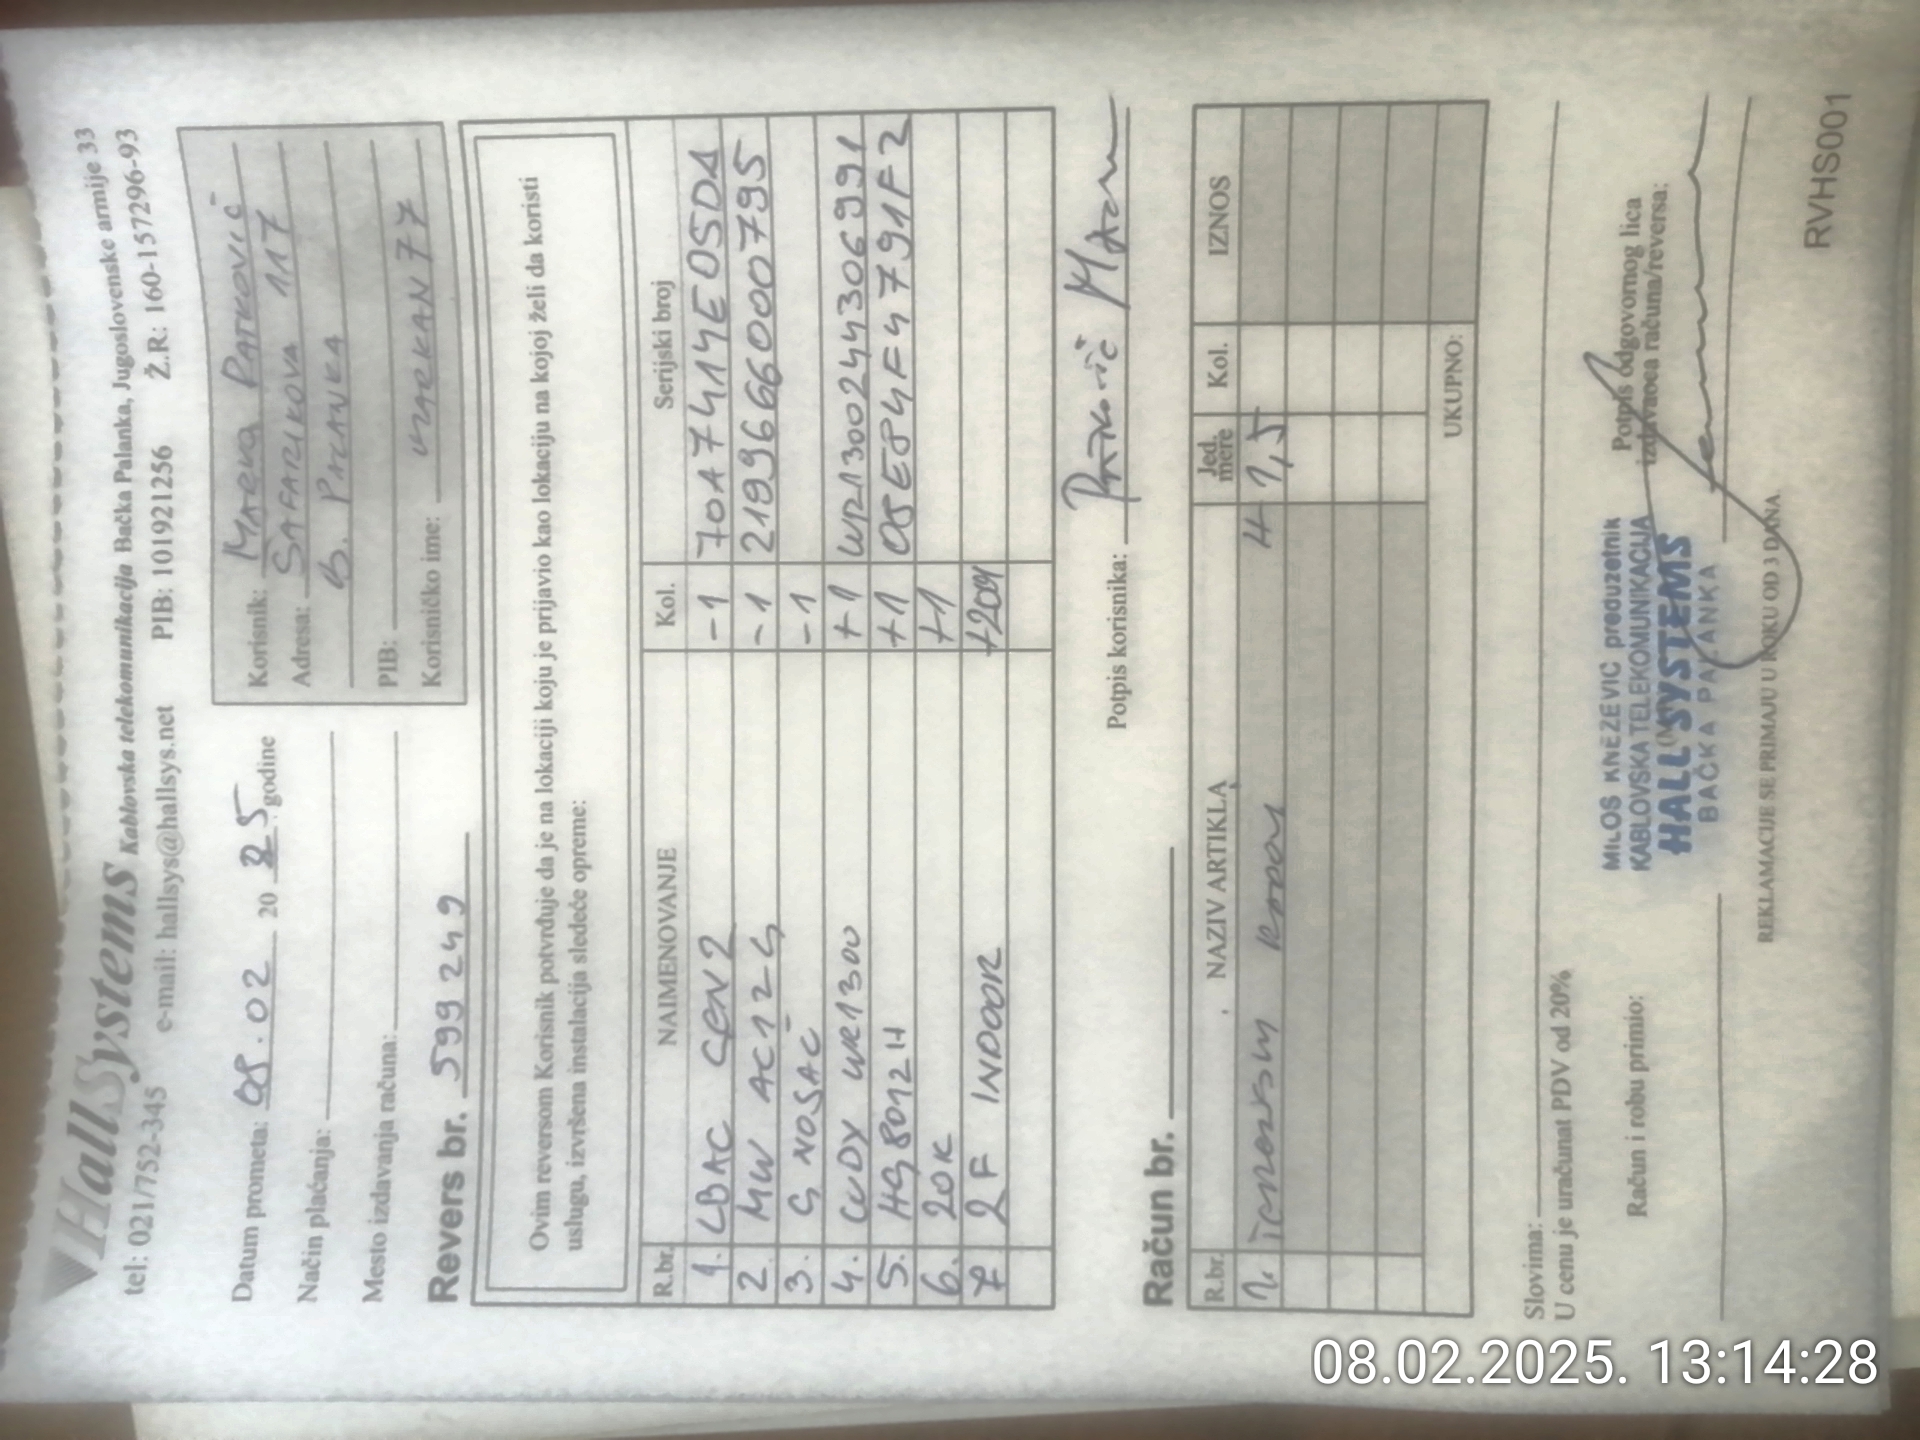 HallSystems Kablovska telekomunikacija Bačka Palanka, Jugoslovenske armije 33
tel: 021/752-345 e-mail: hallsys@hallsys.net PIB: 101921256 Ž.R: 160-157296-93
Datum prometa: 08.02 2025 godine
Način plaćanja:
Mesto izdavanja računa:
Korisnik: PATKOVIĆ
Adresa: ŠAFARIKOVA 117
B. PALANKA
PIB:
Korisničko ime:
Revers br. 599249
Ovim reversom Korisnik potvrđuje da je na lokaciji koju je prijavio kao lokaciju na kojoj želi da koristi
uslugu, izvršena instalacija sledeće opreme:
R.br. NAIMENOVANJE Kol. Serijski broj
1. LBAC GEN2 -1 70A7414E05DA
2. MW AC12G -1 2199666000795
3. G NOSAČ -1
4. CUDY WR1300 +1 WR1300244306991
5. HG8012H +1 05E84F4791F2
6. 20K +1
7 2F INDOOR
Potpis korisnika:
Račun br.
R.br. NAZIV ARTIKLA Jed. mere Kol. IZNOS
1. H 1,5
UKUPNO:
Slovima:
U cenu je uračunat PDV od 20%
Račun i robu primio:
MILOŠ KNEŽEVIĆ preduzetnik
KABLOVSKA TELEKOMUNIKACIJA
HALL SYSTEMS
BAČKA PALANKA
Potpis odgovornog lica
izdavaoca računa/reversa:
REKLAMACIJE SE PRIMAJU U ROKU OD 3 DANA
RVHS001
08.02.2025. 13:14:28